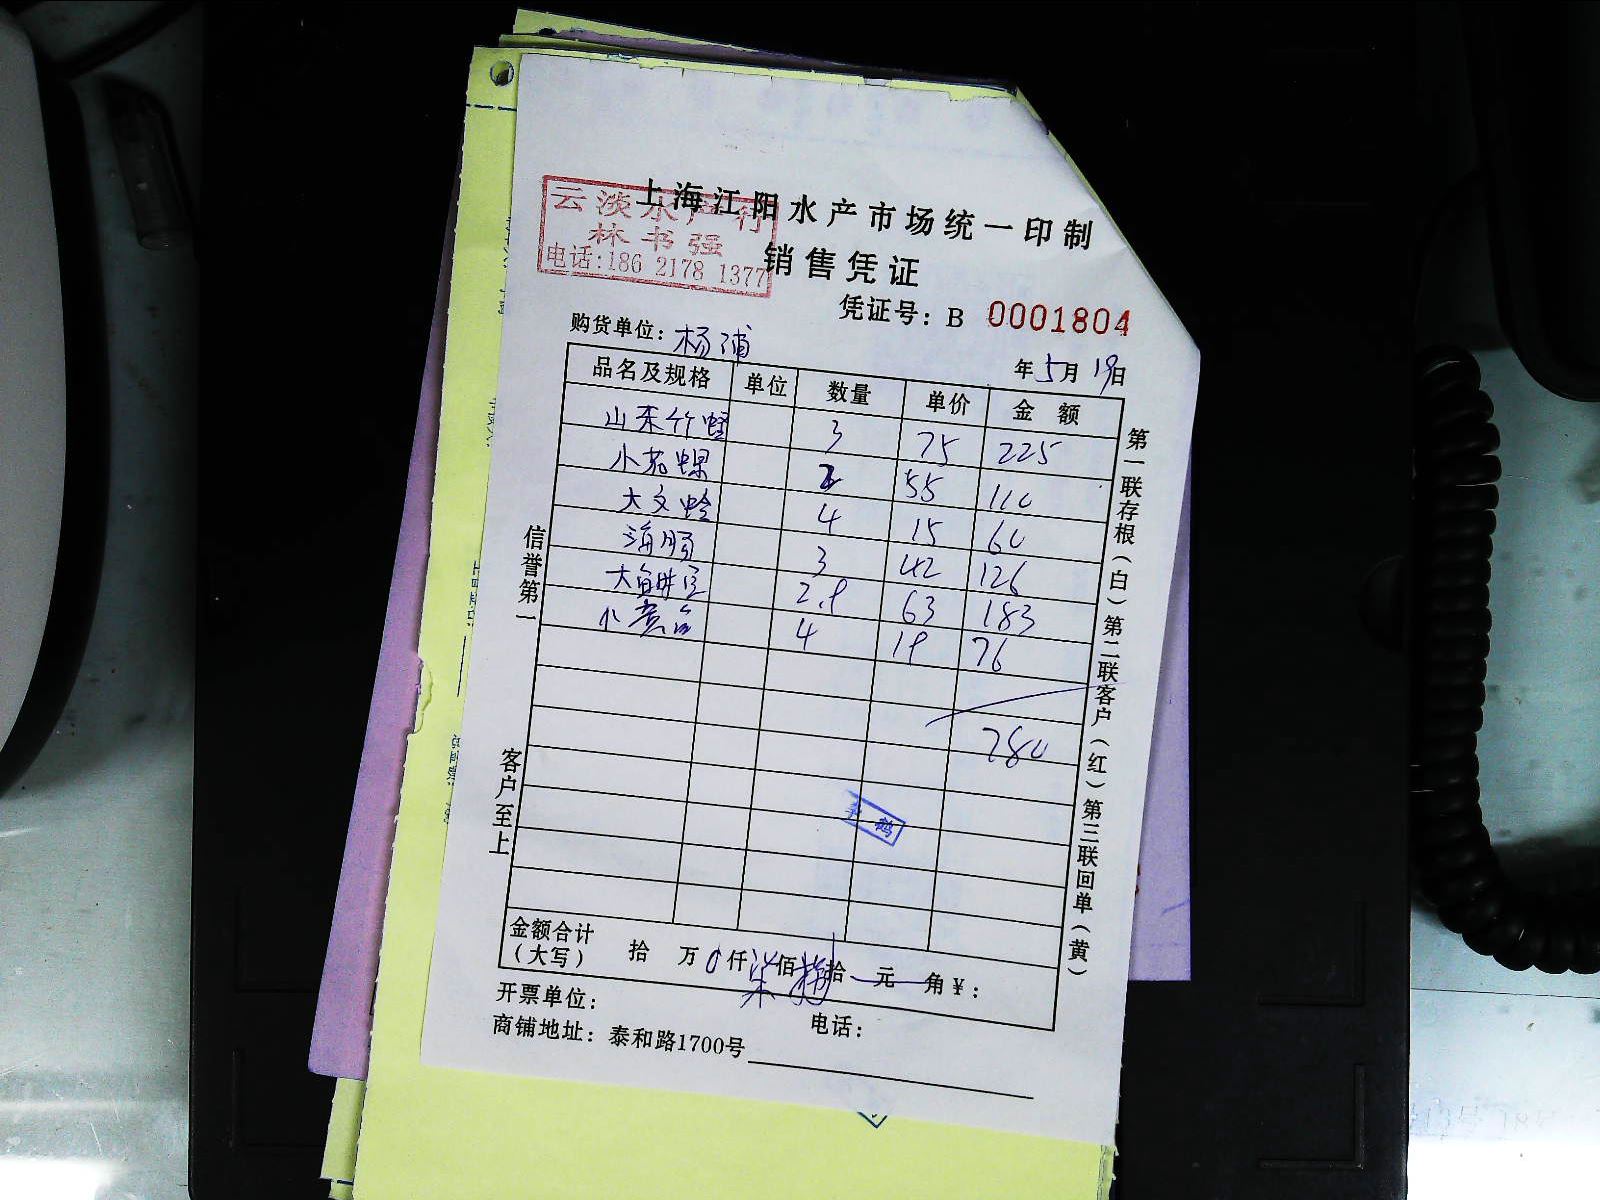 上海江阳水产市场统一印制
云淡水产行
林书强
电话:186 2178 1377
销售凭证
凭证号: B 0001804
购货单位: 杨浦
年5月19日
品名及规格 单位 数量 单价 金额
山东竹蛏 3 75 225
小花螺 2 55 110
大文蛤 4 15 60
海肠 3 42 126
大鱼 2.9 63 183
小黄 4 19 76
780
金额合计（大写） 拾 万 0仟 柒佰 捌拾 元 角 ¥:
开票单位:
电话:
商铺地址: 泰和路1700号
信誉第一
客户至上
第一联存根（白）第二联客户（红）第三联回单（黄）
鹤